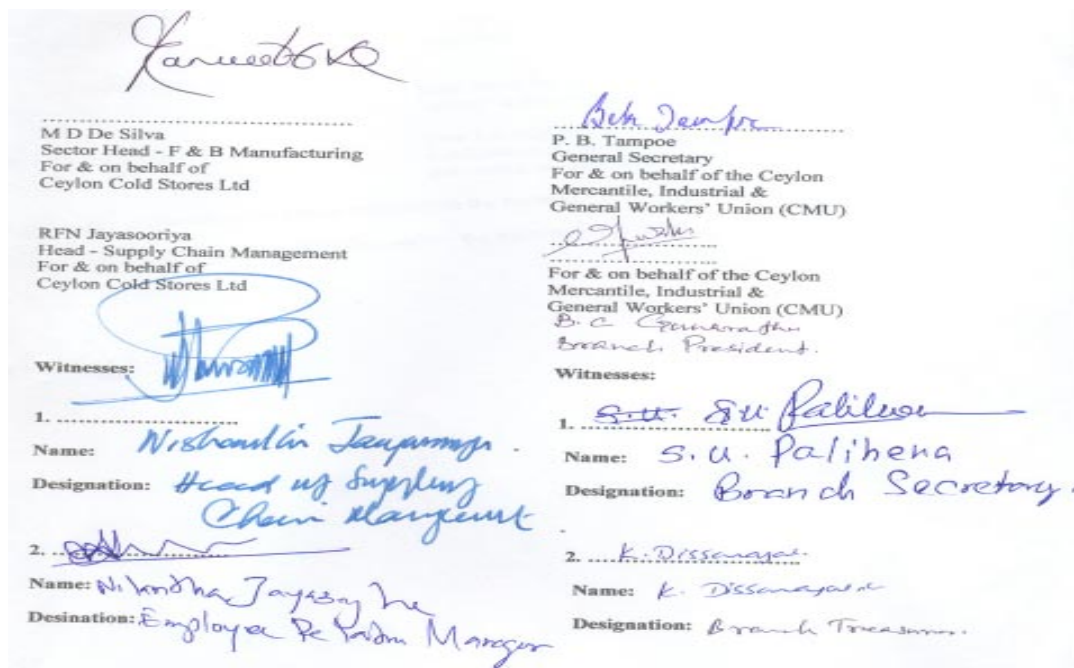 M D De Silva
Sector Head - F & B Manufacturing
For & on behalf of
Ceylon Cold Stores Ltd
RFN Jayasooriya
Head - Supply Chain Management
For & on behalf of
Ceylon Cold Stores Ltd
Witnesses:
1. ..............................
Name: Nishanthi
Designation: Head of
Chain
2. ..............................
Name:
Desination: Employee
P. B. Tampoe
General Secretary
For & on behalf of the Ceylon
Mercantile, Industrial &
General Workers' Union (CMU)
..............................
For & on behalf of the Ceylon
Mercantile, Industrial &
General Workers' Union (CMU)
B. C
Branch President.
Witnesses:
1. S.U.
Name: S. U. Palihena
Designation: Branch Secretary.
2. K. Dissanayake
Name: K. Dissanayake
Designation: Branch Treasurer.